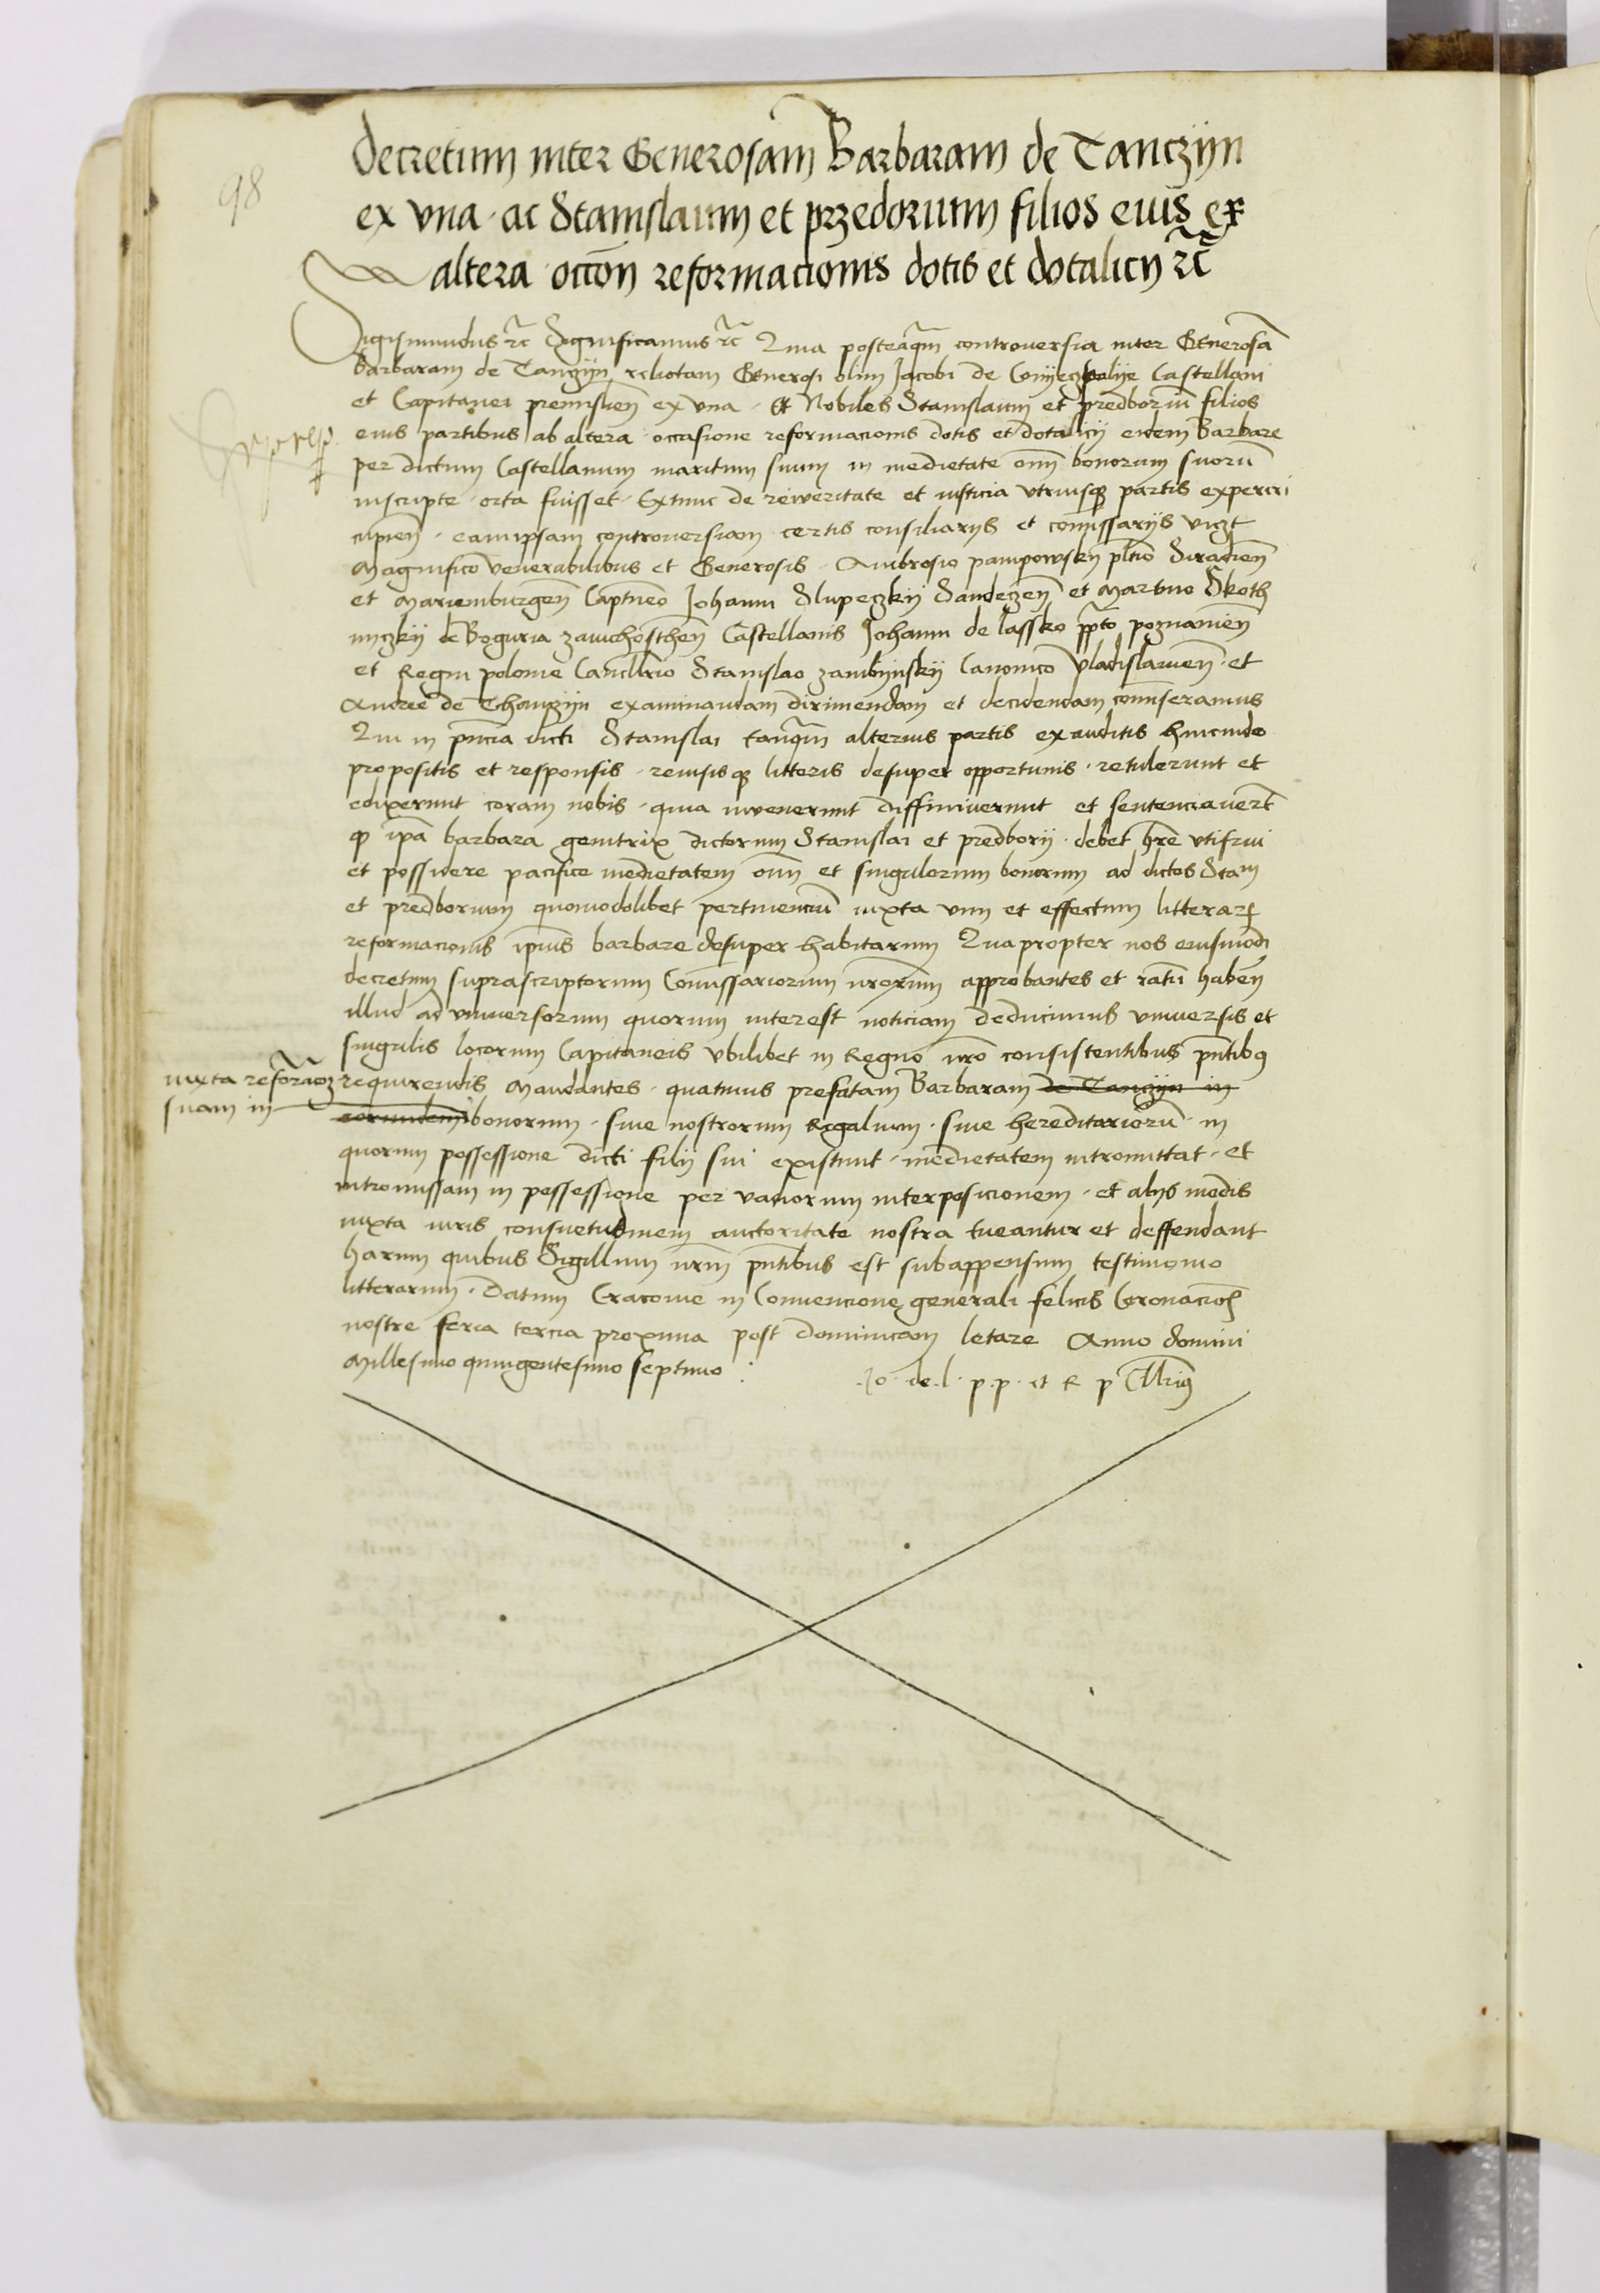 98
Decretum inter Generosam Barbaram de Tanczyn
ex vna · ac Stanislaum et przedorum filios eius ex
altera occōn reformacionis dotis et dotalicy rc̄
Sigismundus rc̄ Significamus rc̄ Quia posteaq̄m controuersia inter Generosā
Barbaram de Tanczyn relictam Generosi olim Jacobi de Conyeczpolye Castellani
et Capitanei premislien̄ ex vna · Et Nobiles Stanislaum et predboriū filios
eius partibus ab altera occasione reformacionis dotis et dotalicy eidem Barbare
per dictum Castellanum maritum suum in medietate om̄ bonorum suorū
inscripte · orta fuisset · Extunc de rei veritate et iusticia vtriusq̨ partis experiri
cupien̄ · eamipsam controuersiam certis consiliarys et com̄issarys vicz̨t
Magnifico venerabilibus et Generosis · Ambrosio pampowsky pltīo Siradien̄
et Mariemburgen̄ Captneō Johanni Slupeczky Sandeczen̄ et Martino Skoth
niczky de Boguria zawichosthen̄ Castellanis Johanni de lassko ppto poznanien̄
et Regni polonie Cancllrīo Stanislao zambynsky Canonico Vladislauien̄ · et
Andree de Thanczyn examinandam dirimendam et decidendam com̄iseramus
Qui in pn̄cia dicti Stanislai tanq̄m alterius partis exauditis hincinde
propositis et responsis · reuisisq̨ litteris desuper opportunis · retulerunt et
eduxerunt coram nobis · quia inuenerunt diffiniuerunt et sentenciauerūt
q̨ ip̄a barbara genitrix dictorum Stanislai et predbory · debet hr̄e vtifrui
et possidere pacifice medietatem om̄ et singulorum bonorum ad dictos Stam
et predborium quomodolibet pertinenciū iuxta vim et effectum litterarꝝ
reformacionis ipius̄ barbare desuper habitarum Quapropter nos eiusmodi
decretum suprascriptorum Com̄issariorum nr̄orum approbantes et ratū haben̄
illud ad vniuersorum quorum interest noticiam deducimus vniuersis et
singulis locorum Capitaneis vbilibet in Regno nr̄o consistentibus pn̄tibus
iuxta reformacōz requirendis Mandantes · quatinus prefatam Barbaram de Tanczyn in
suam in eorundem bonorum · siue nostrorum Regalium · siue hereditariorū · in
quorum possessione dicti fily sui existunt · medietatem intromittat · et
intromissam in possessione per vadiorum interposicionem · et alys modis
iuxta iuris consuetudinem auctoritate nostra tueantur et deffendant
harum quibus Sigillum nr̄m pn̄tibus est subappensum testimonio
litterarum · Datum Cracouie in Conuencione generali felicis Coronaciōis
nostre feria tercia proxima post dominicam letare Anno domini
Millesimo quingentesimo septimo :
Jo · de · l · p · p · et R p Cllrius